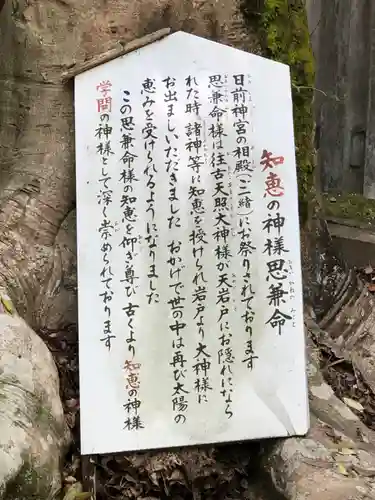 知恵の神様思兼命
おもいかねのみこと
日前神宮の相殿(ご一緒)にお祭りされております
思兼命様は往古天照大神様が天岩戸にお隠れになら
れた時諸神等に知恵を授けられ岩戸より大神様に
お出ましいただきました おかげで世の中は再び太陽の
恵みを受けられるようになりました
この思兼命様の知恵を仰ぎ尊び 古くより知恵の神様
学問の神様として深く崇められております